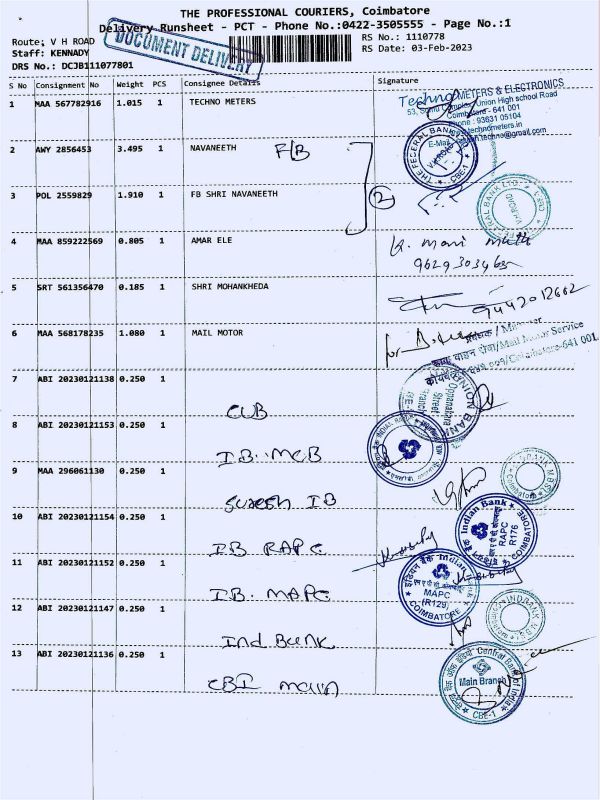 THE PROFESSIONAL COURIERS, Coimbatore
Delivery Runsheet - PCT - Phone No.:0422-3505555 - Page No.:1
Route: V H ROAD
RS No.: 1110778
Staff: KENNADY
RS Date: 03-Feb-2023
DRS No.: DCJB111077801
DOCUMENT DELIVERY
S No Consignment No Weight PCS Consignee Details Signature
1 MAA 567782916 1.015 1 TECHNO METERS
Techno METERS & ELECTRONICS
Union High school Road
Coimbatore - 641 001
Phone : 93631 05104
2 AWY 2856453 3.495 1 NAVANEETH F/B
THE FEDERAL BANK
CBE-1
3 POL 2559829 1.910 1 FB SHRI NAVANEETH
2
4 MAA 859222569 0.805 1 AMAR ELE
5 SRT 561356470 0.185 1 SHRI MOHANKHEDA
9442012662
6 MAA 568178235 1.080 1 MAIL MOTOR
for
7 ABI 20230121138 0.250 1
CUB
UNION BANK
Oppanakara
Street
Branch
8 ABI 20230121153 0.250 1
I.B. MCB
INDIAN BANK
9 MAA 296061130 0.250 1
Suresh IB
10 ABI 20230121154 0.250 1
I.B RAPC
Indian Bank
RAPC
R176
COIMBATORE
11 ABI 20230121152 0.250 1
I.B. MAPC
इंडियन बैंक Indian Bank
MAPC
(R129)
COIMBATORE
12 ABI 20230121147 0.250 1
Ind Bank
INDBANK
13 ABI 20230121136 0.250 1
CBI main
Central Bank of India
Main Branch
CBE-1